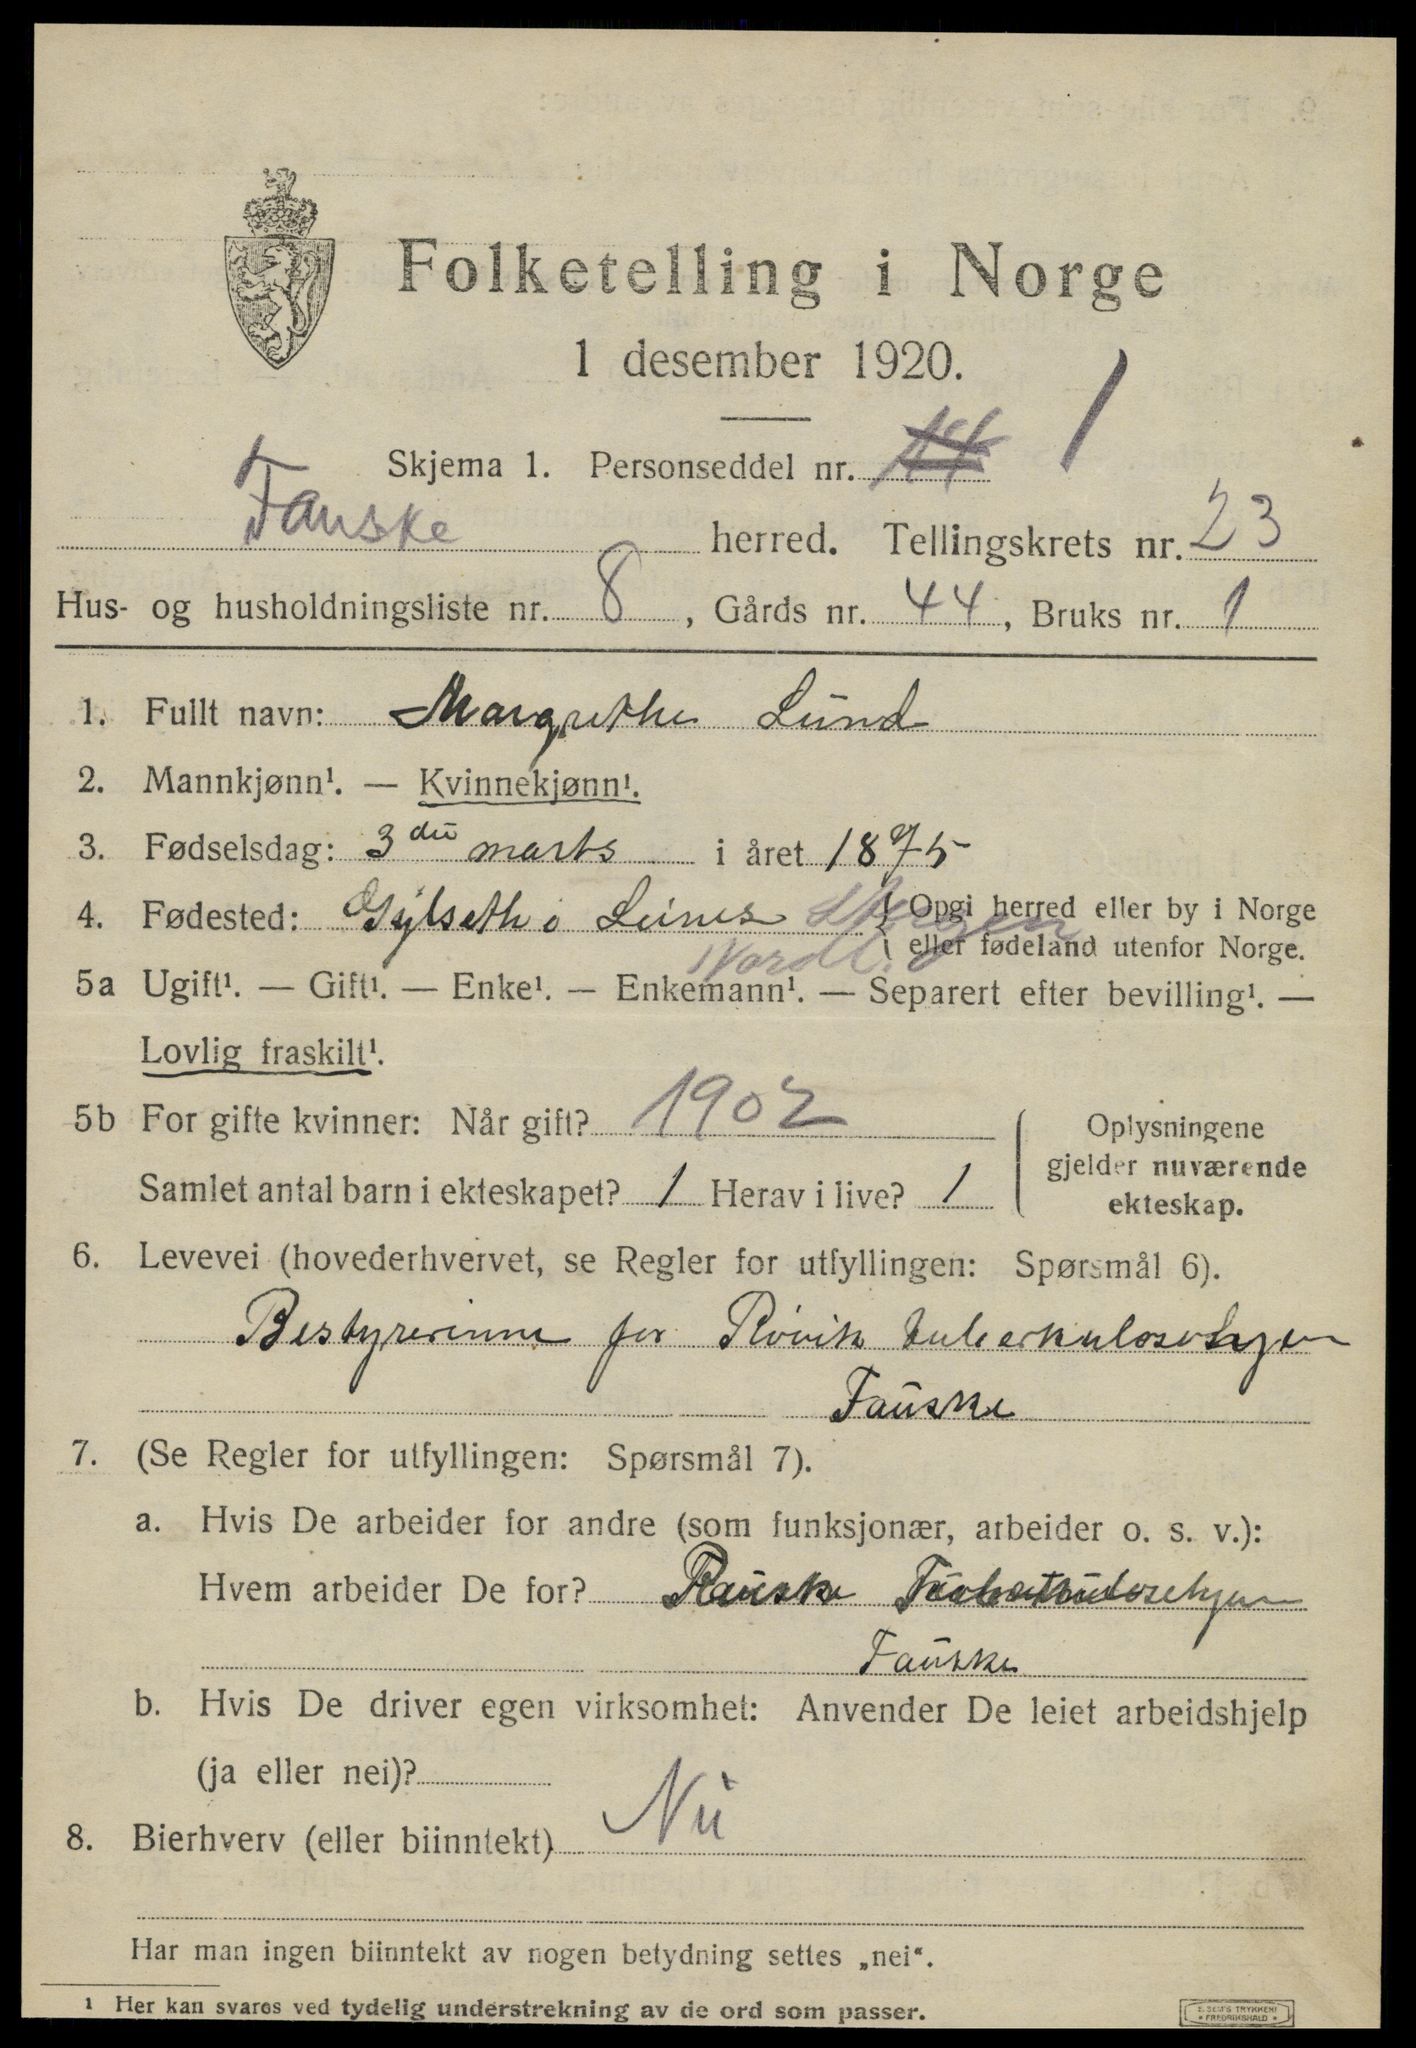 Folketelling i Norge
1 desember 1920.
Skjema 1. Personseddel nr. 1
Fauske herred. Tellingskrets nr. 23
Hus- og husholdningsliste nr. 8, Gårds nr. 44, Bruks nr. 1
1. Fullt navn: Margrethe Lund
2. Mannkjønn¹. — Kvinnekjønn¹.
3. Fødselsdag: 3die marts i året 1875
4. Fødested: Gylseth i Leines Steigen { Opgi herred eller by i Norge
Nordl. { eller fødeland utenfor Norge.
5a Ugift¹. — Gift¹. — Enke¹. — Enkemann¹. — Separert efter bevilling¹. —
Lovlig fraskilt¹.
5b For gifte kvinner: Når gift? 1902
Samlet antal barn i ekteskapet? 1 Herav i live? 1
Oplysningene
gjelder nuværende
ekteskap.
6. Levevei (hovederhvervet, se Regler for utfyllingen: Spørsmål 6).
Bestyrerinne for Røvik tuberkulosehjem
Fauske
7. (Se Regler for utfyllingen: Spørsmål 7).
a. Hvis De arbeider for andre (som funksjonær, arbeider o. s. v.):
Hvem arbeider De for? Fauske Tuberkulosehjem
Fauske
b. Hvis De driver egen virksomhet: Anvender De leiet arbeidshjelp
(ja eller nei)?
8. Bierhverv (eller biinntekt) Nei
Har man ingen biinntekt av nogen betydning settes „nei“.
¹ Her kan svares ved tydelig understrekning av de ord som passer.
E. SEM'S TRYKKERI
* FREDRIKSHALD *